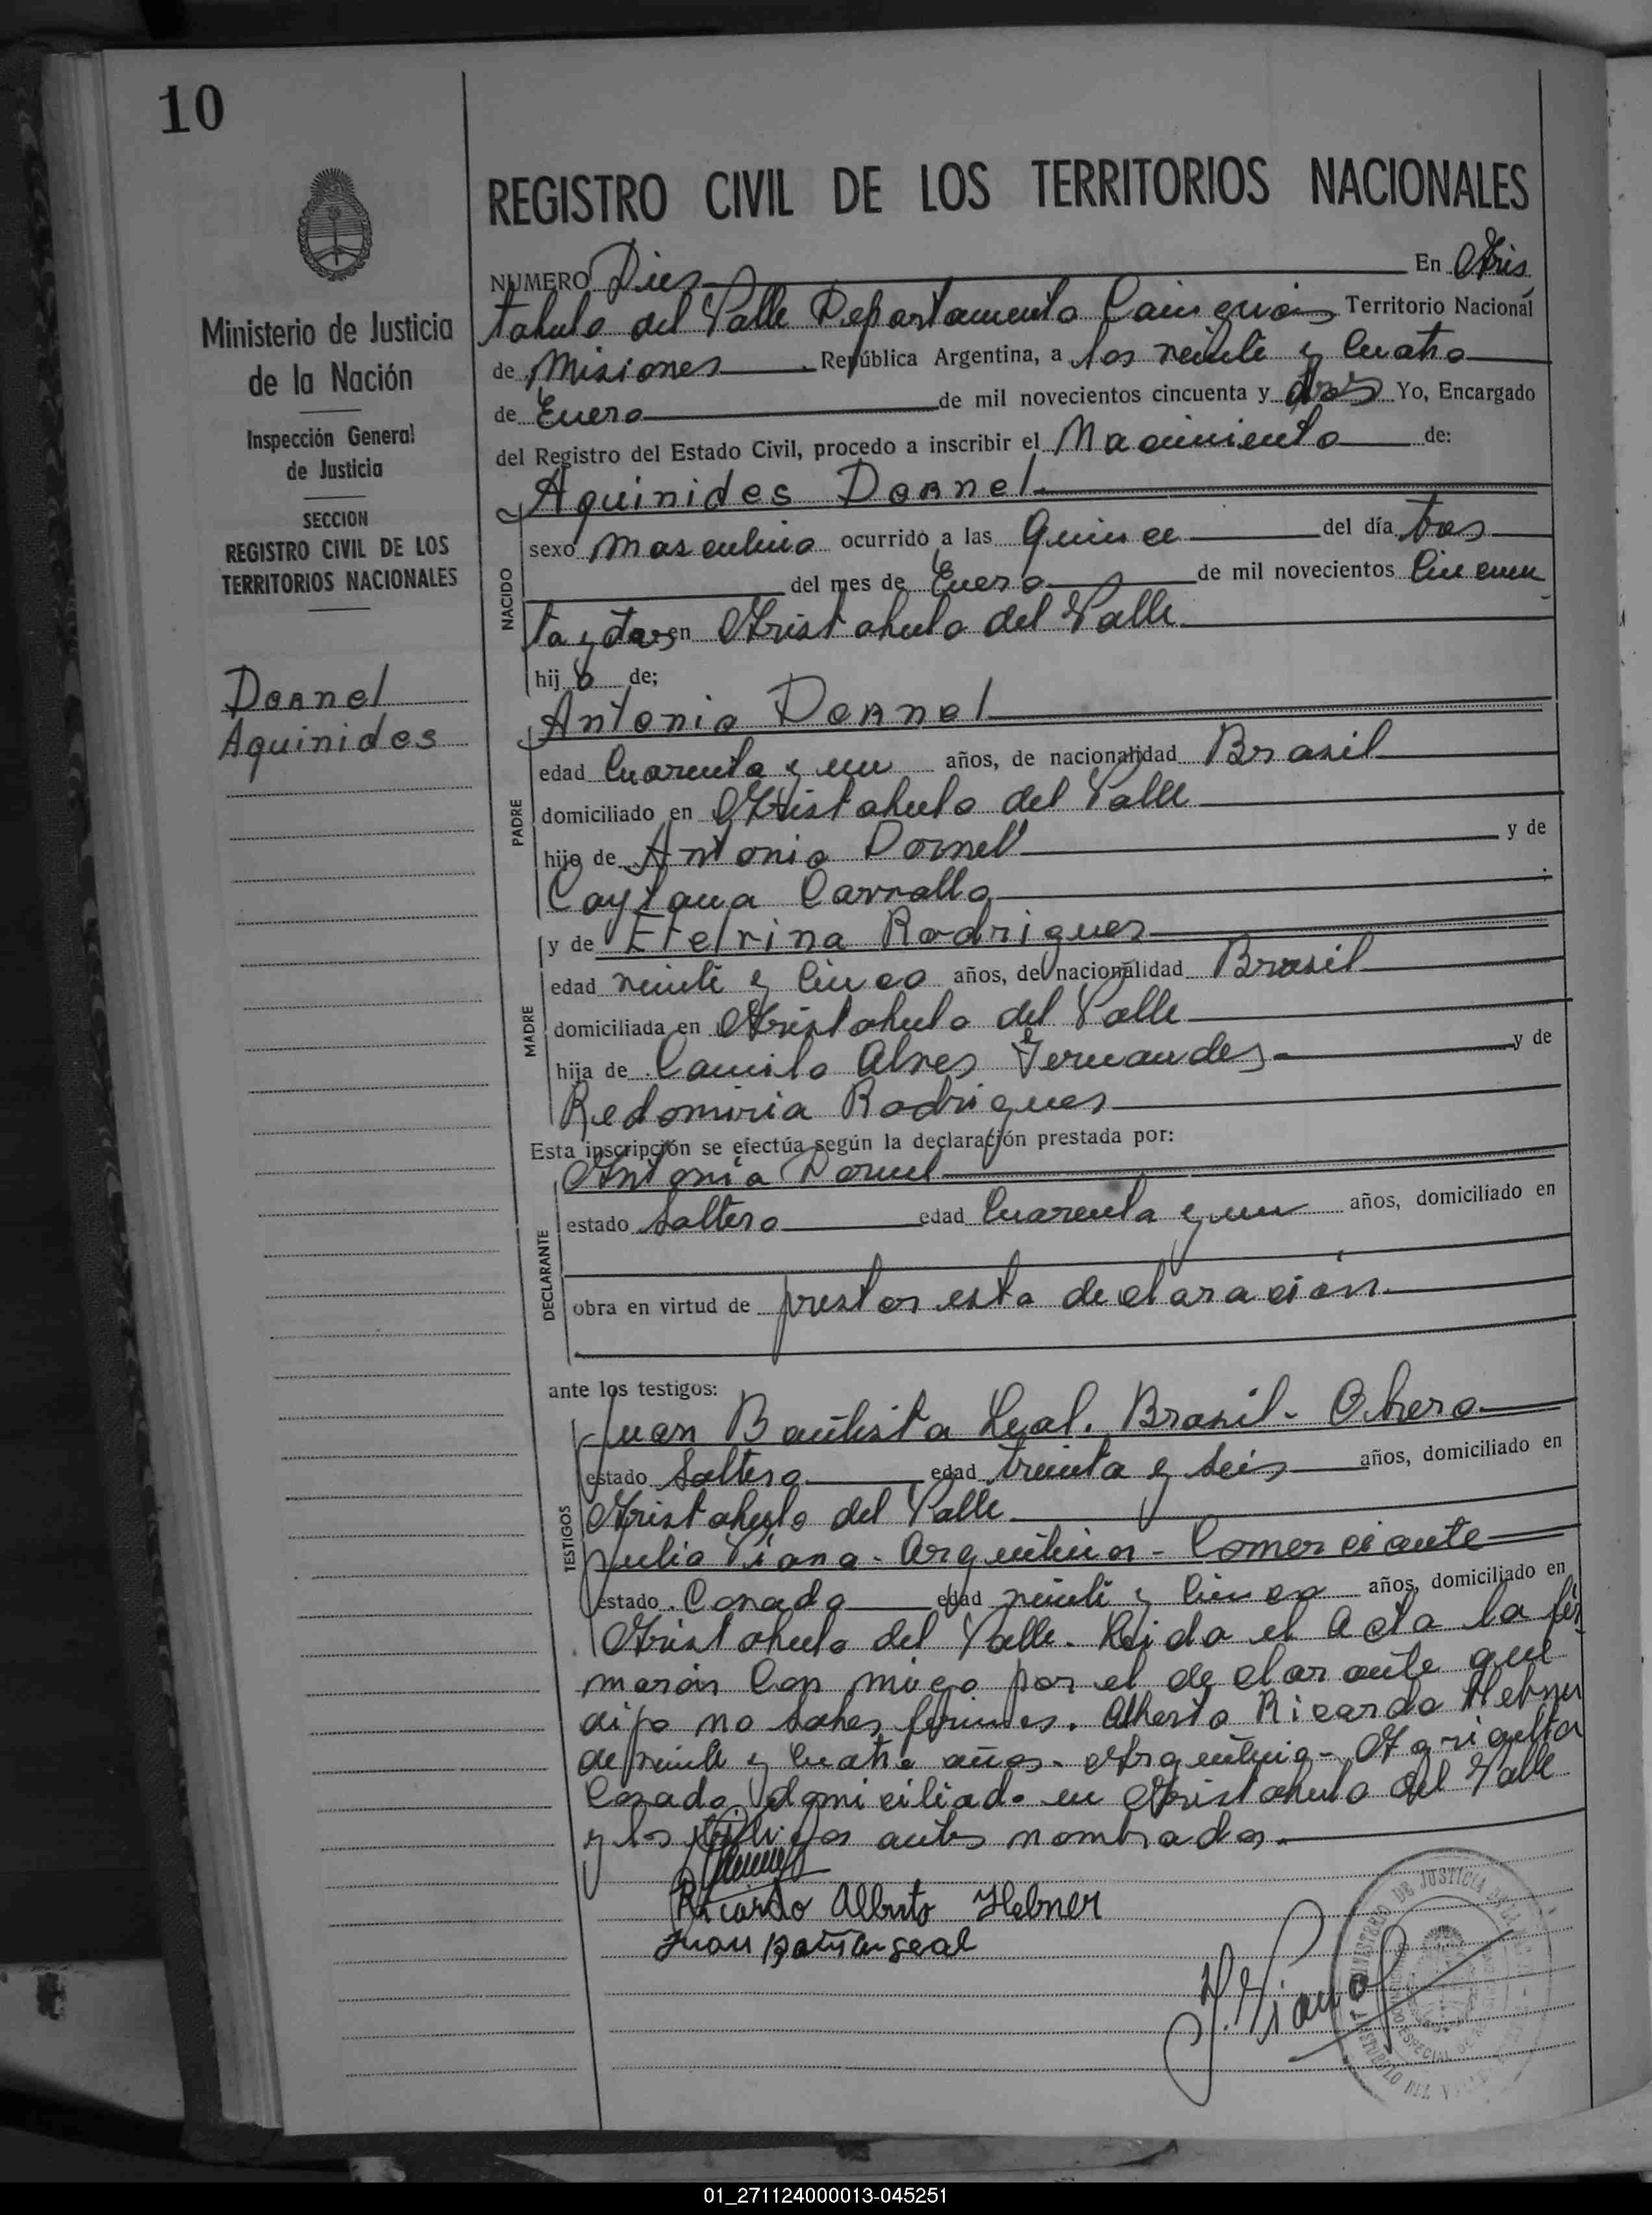 10
REGISTRO CIVIL DE LOS TERRITORIOS NACIONALES
Ministerio de Justicia
de la Nación
Inspección General
de Justicia
SECCION
REGISTRO CIVIL DE LOS
TERRITORIOS NACIONALES
Dornel
Aquinides
NUMERO Diez En Aris
tobulo del Valle Departamento Cainguás Territorio Nacional
de Misiones República Argentina, a los veinte y Cuatro
de Enero de mil novecientos cincuenta y dos Yo, Encargado
del Registro del Estado Civil, procedo a inscribir el Nacimiento de:
NACIDO
Aquinides Dornel
sexo masculino ocurrido a las Quince del día tres
del mes de Enero de mil novecientos Cincuen
ta y dos en Aristobulo del Valle
hijo de;
PADRE
Antonio Dornel
edad Cuarenta y un años, de nacionalidad Brasil
domiciliado en Aristobulo del Valle
hijo de Antonio Dornel y de
Caytana Carvallo
MADRE
y de Etelvina Rodrigues
edad veinte y Cinco años, de nacionalidad Brasil
domiciliada en Aristobulo del Valle
hija de Camilo Alves Fernandez y de
Redomiria Rodrigues
Esta inscripción se efectúa según la declaración prestada por:
DECLARANTE
Antonio Dornel
estado Soltero edad Cuarenta y un años, domiciliado en
obra en virtud de prestar esta declaración
ante los testigos:
TESTIGOS
Juan Bautista Leal. Brasil - Obrero
estado Soltero edad treinta y Seis años, domiciliado en
Aristobulo del Valle
Julio Viana - Argentino - Comerciante
estado Casado edad veinte y Cinco años, domiciliado en
Aristobulo del Valle. Leida el Acta la fir
maron Con migo por el declarante que
dijo no saber firmar. Alberto Ricardo Hebner
de veinte y Cuatro años - Argentino - Agricultor
Casado domiciliado en Aristobulo del Valle
y los testigos antes nombrados.
Ricardo Alberto Hebner
Juan Bautista Leal
J. Viana
MINISTERIO DE JUSTICIA DE LA
ARISTOBULO DEL VALLE
01_271124000013-045251